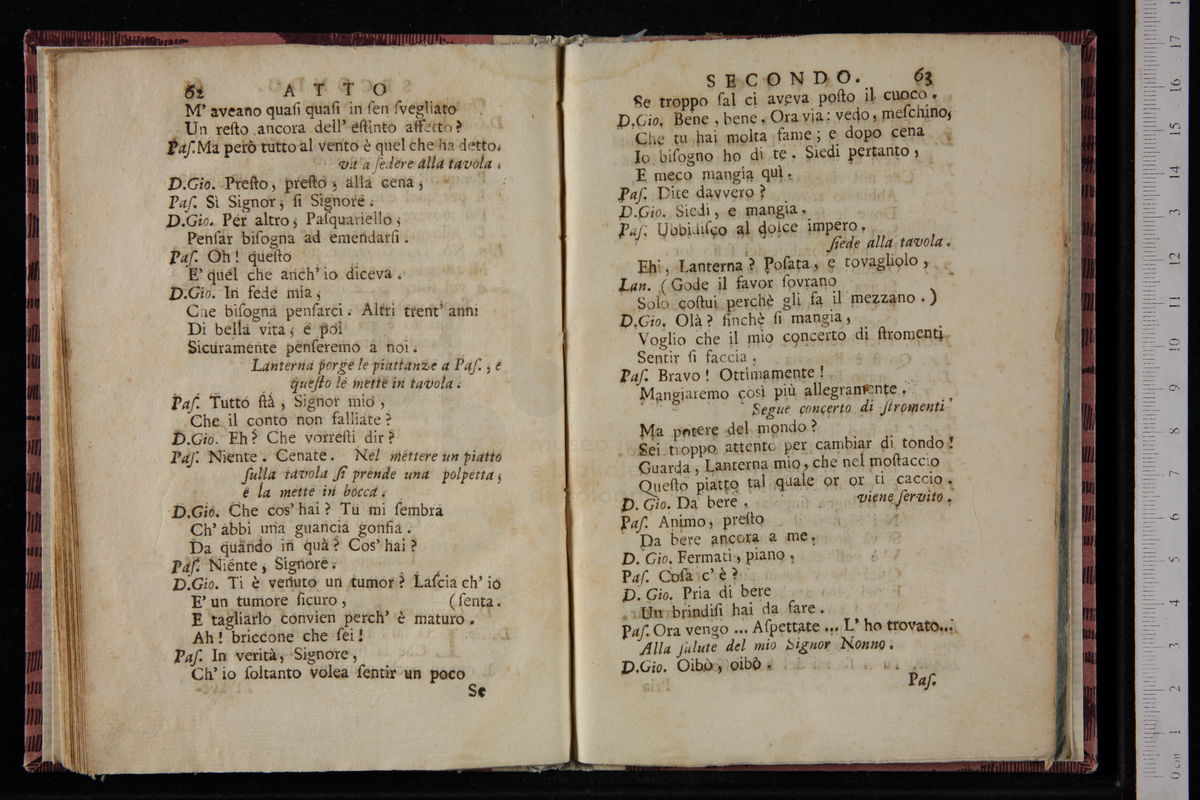 62 ATTO
M' aveano quaſi quaſi in ſen ſvegliato
Un reſto ancora dell' eſtinto affetto?
Paſ. Ma però tutto al vento è quel che ha detto.
va a ſedere alla tavola.
D.Gio. Preſto, preſto, alla cena,
Paſ. Sì Signor, ſi Signore.
D.Gio. Per altro, Paſquariello,
Penſar biſogna ad emendarſi.
Paſ. Oh! queſto
E' quel che anch' io diceva.
D.Gio. In fede mia,
Che biſogna penſarci. Altri trent' anni
Di bella vita, e poi
Sicuramente penſeremo a noi.
Lanterna porge le piattanze a Paſ., e
queſto le mette in tavola.
Paſ. Tutto ſtà, Signor mio,
Che il conto non falliate?
D.Gio. Eh? Che vorreſti dir?
Paſ. Niente. Cenate. Nel mettere un piatto
ſulla tavola ſi prende una polpetta,
e la mette in bocca.
D.Gio. Che cos' hai? Tu mi ſembra
Ch' abbi una guancia gonfia.
Da quando in quà? Cos' hai?
Paſ. Niente, Signore.
D.Gio. Ti è venuto un tumor? Laſcia ch' io
E' un tumore ſicuro, (ſenta.
E tagliarlo convien perch' è maturo.
Ah! briccone che ſei!
Paſ. In verità, Signore,
Ch' io ſoltanto volea ſentir un poco
Se
SECONDO. 63
Se troppo ſal ci aveva poſto il cuoco.
D.Gio. Bene, bene. Ora via: vedo, meſchino,
Che tu hai molta fame; e dopo cena
Io biſogno ho di te. Siedi pertanto,
E meco mangia quì.
Paſ. Dite davvero?
D.Gio. Siedi, e mangia.
Paſ. Ubbidiſco al dolce impero.
ſiede alla tavola.
Ehi, Lanterna? Poſata, e tovagliolo,
Lan. (Gode il favor ſovrano
Solo coſtui perchè gli fa il mezzano.)
D.Gio. Olà? finchè ſi mangia,
Voglio che il mio concerto di ſtromenti
Sentir ſi faccia.
Paſ. Bravo! Ottimamente!
Mangiaremo così più allegramente.
Segue concerto di ſtromenti
Ma potere del mondo?
Sei troppo attento per cambiar di tondo!
Guarda, Lanterna mio, che nel moſtaccio
Queſto piatto tal quale or or ti caccio.
D. Gio. Da bere. viene ſervito.
Paſ. Animo, preſto
Da bere ancora a me.
D. Gio. Fermati, piano,
Paſ. Coſa c' è?
D. Gio. Pria di bere
Un brindiſi hai da fare.
Paſ. Ora vengo ... Aſpettate ... L' ho trovato...:
Alla ſalute del mio Signor Nonno.
D.Gio. Oibò, oibò.
Paſ.